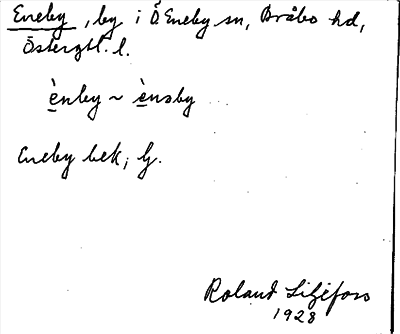 Eneby, by i Ö. Eneby sn, Bråbo hd,
Östergtl. l.
ènby ~ ènəby
Eneby bek; G.
Roland Liljefors
1928